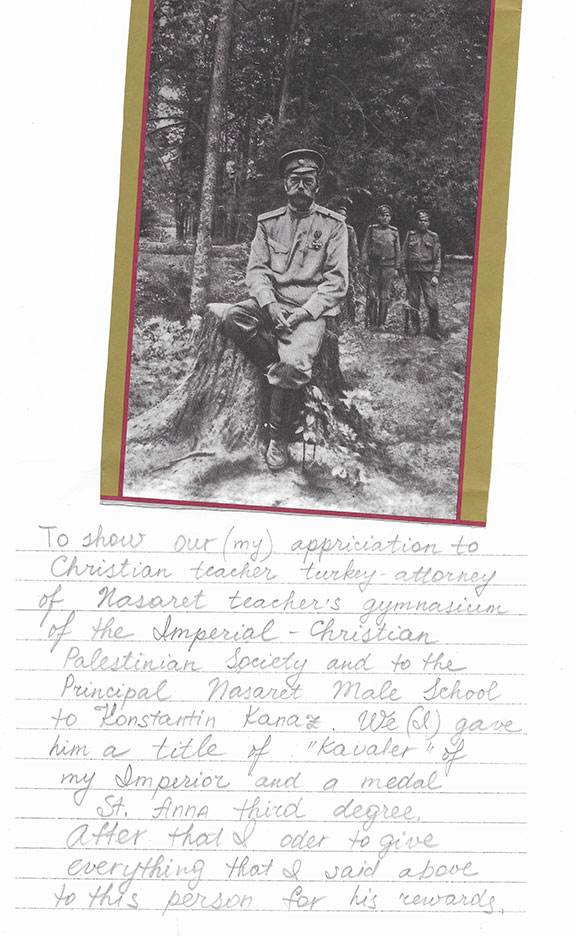 To show our (my) appriciation to
Christian teacher turkey-attorney
of Nasaret teacher's gymnasium
of the Imperial-Christian
Palestinian Society and to the
Principal Nasaret Male School
to Konstantin Kanaz. We (I) gave
him a title of "Kavaler" of
my Imperior and a medal
St. Anna third degree.
After that I oder to give
everything that I said above
to this person for his rewards.